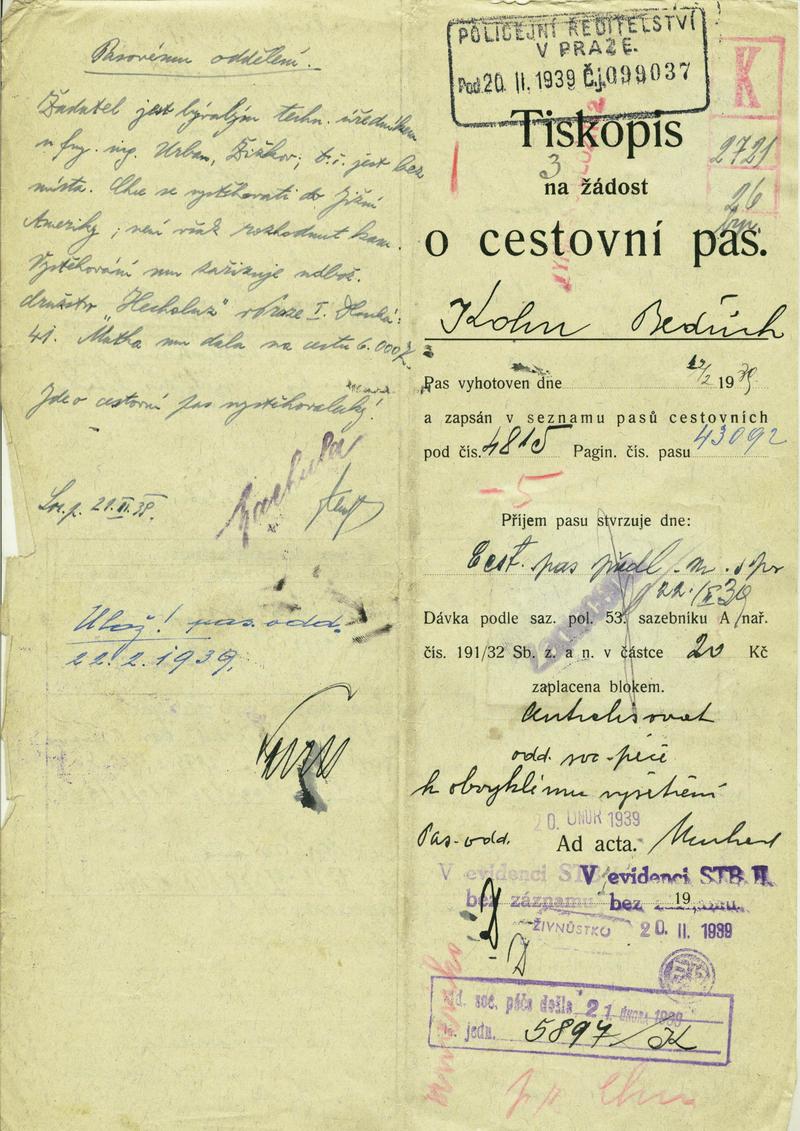 Pasovému oddělení.
Žadatel jest bývalým techn. úředníkem
u fmy. ing. Urban, Žižkov; t. č. jest bez
místa. Chce se vystěhovati do Jižní
Ameriky; není však rozhodnut kam.
Vystěhování mu zařizuje
družstvo "Hechaluz" v Praze I. Dlouhá
41. Matka mu dala na cestu 6.000 K.
Jde o cestovní pas vystěhovalecký!
21. II. 39.
Ulož! pas. odd.
22.2.1939.
POLICEJNÍ ŘEDITELSTVÍ
V PRAZE.
Pod. 20 II. 1939 Čj. 099037
K
2721
26
Tiskopis
3
na žádost
o cestovní pas.
Kohn Bedřich
Pas vyhotoven dne 22/2 1939
a zapsán v seznamu pasů cestovních
pod čís. 4815 Pagin. čís. pasu 43092
5
Příjem pasu stvrzuje dne:
Cest. pas
22./II 39
Dávka podle saz. pol. 53. sazebníku A nař.
čís. 191/32 Sb. z. a n. v částce 20 Kč
zaplacena blokem.
odd. soc. péče
k obvyklému vyšetření
20. ÚNOR 1939
Pas. odd. Ad acta.
V evidenci STB V evidenci STB II.
bez záznamu bez 19
ŽIVNŮSTKO 20. II. 1939
odd. soc. péče došla 21. ÚNORA 1939
č. jedn. 5897/K